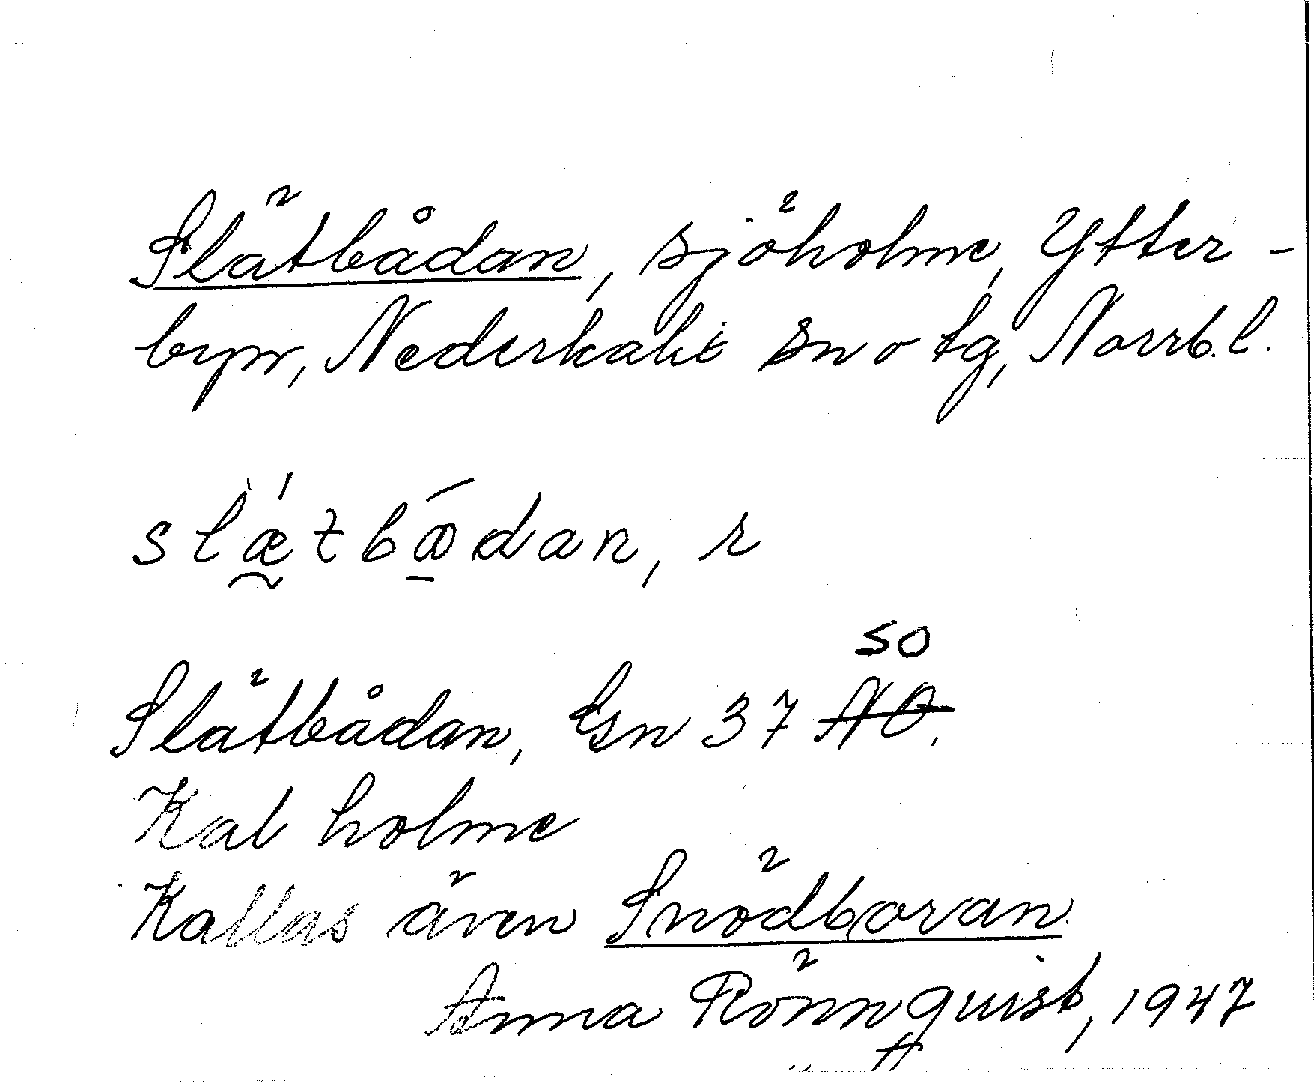 Slätbådan, sjöholme, Ytter-
byn, Nederkalix sn o tg, Norrb. l.
slǽ̰tbǿ̱dan, r
Slätbådan, Gsn 37 SO
Kal holme
Kallas även Snödboran
Anna Rönnquist, 1947